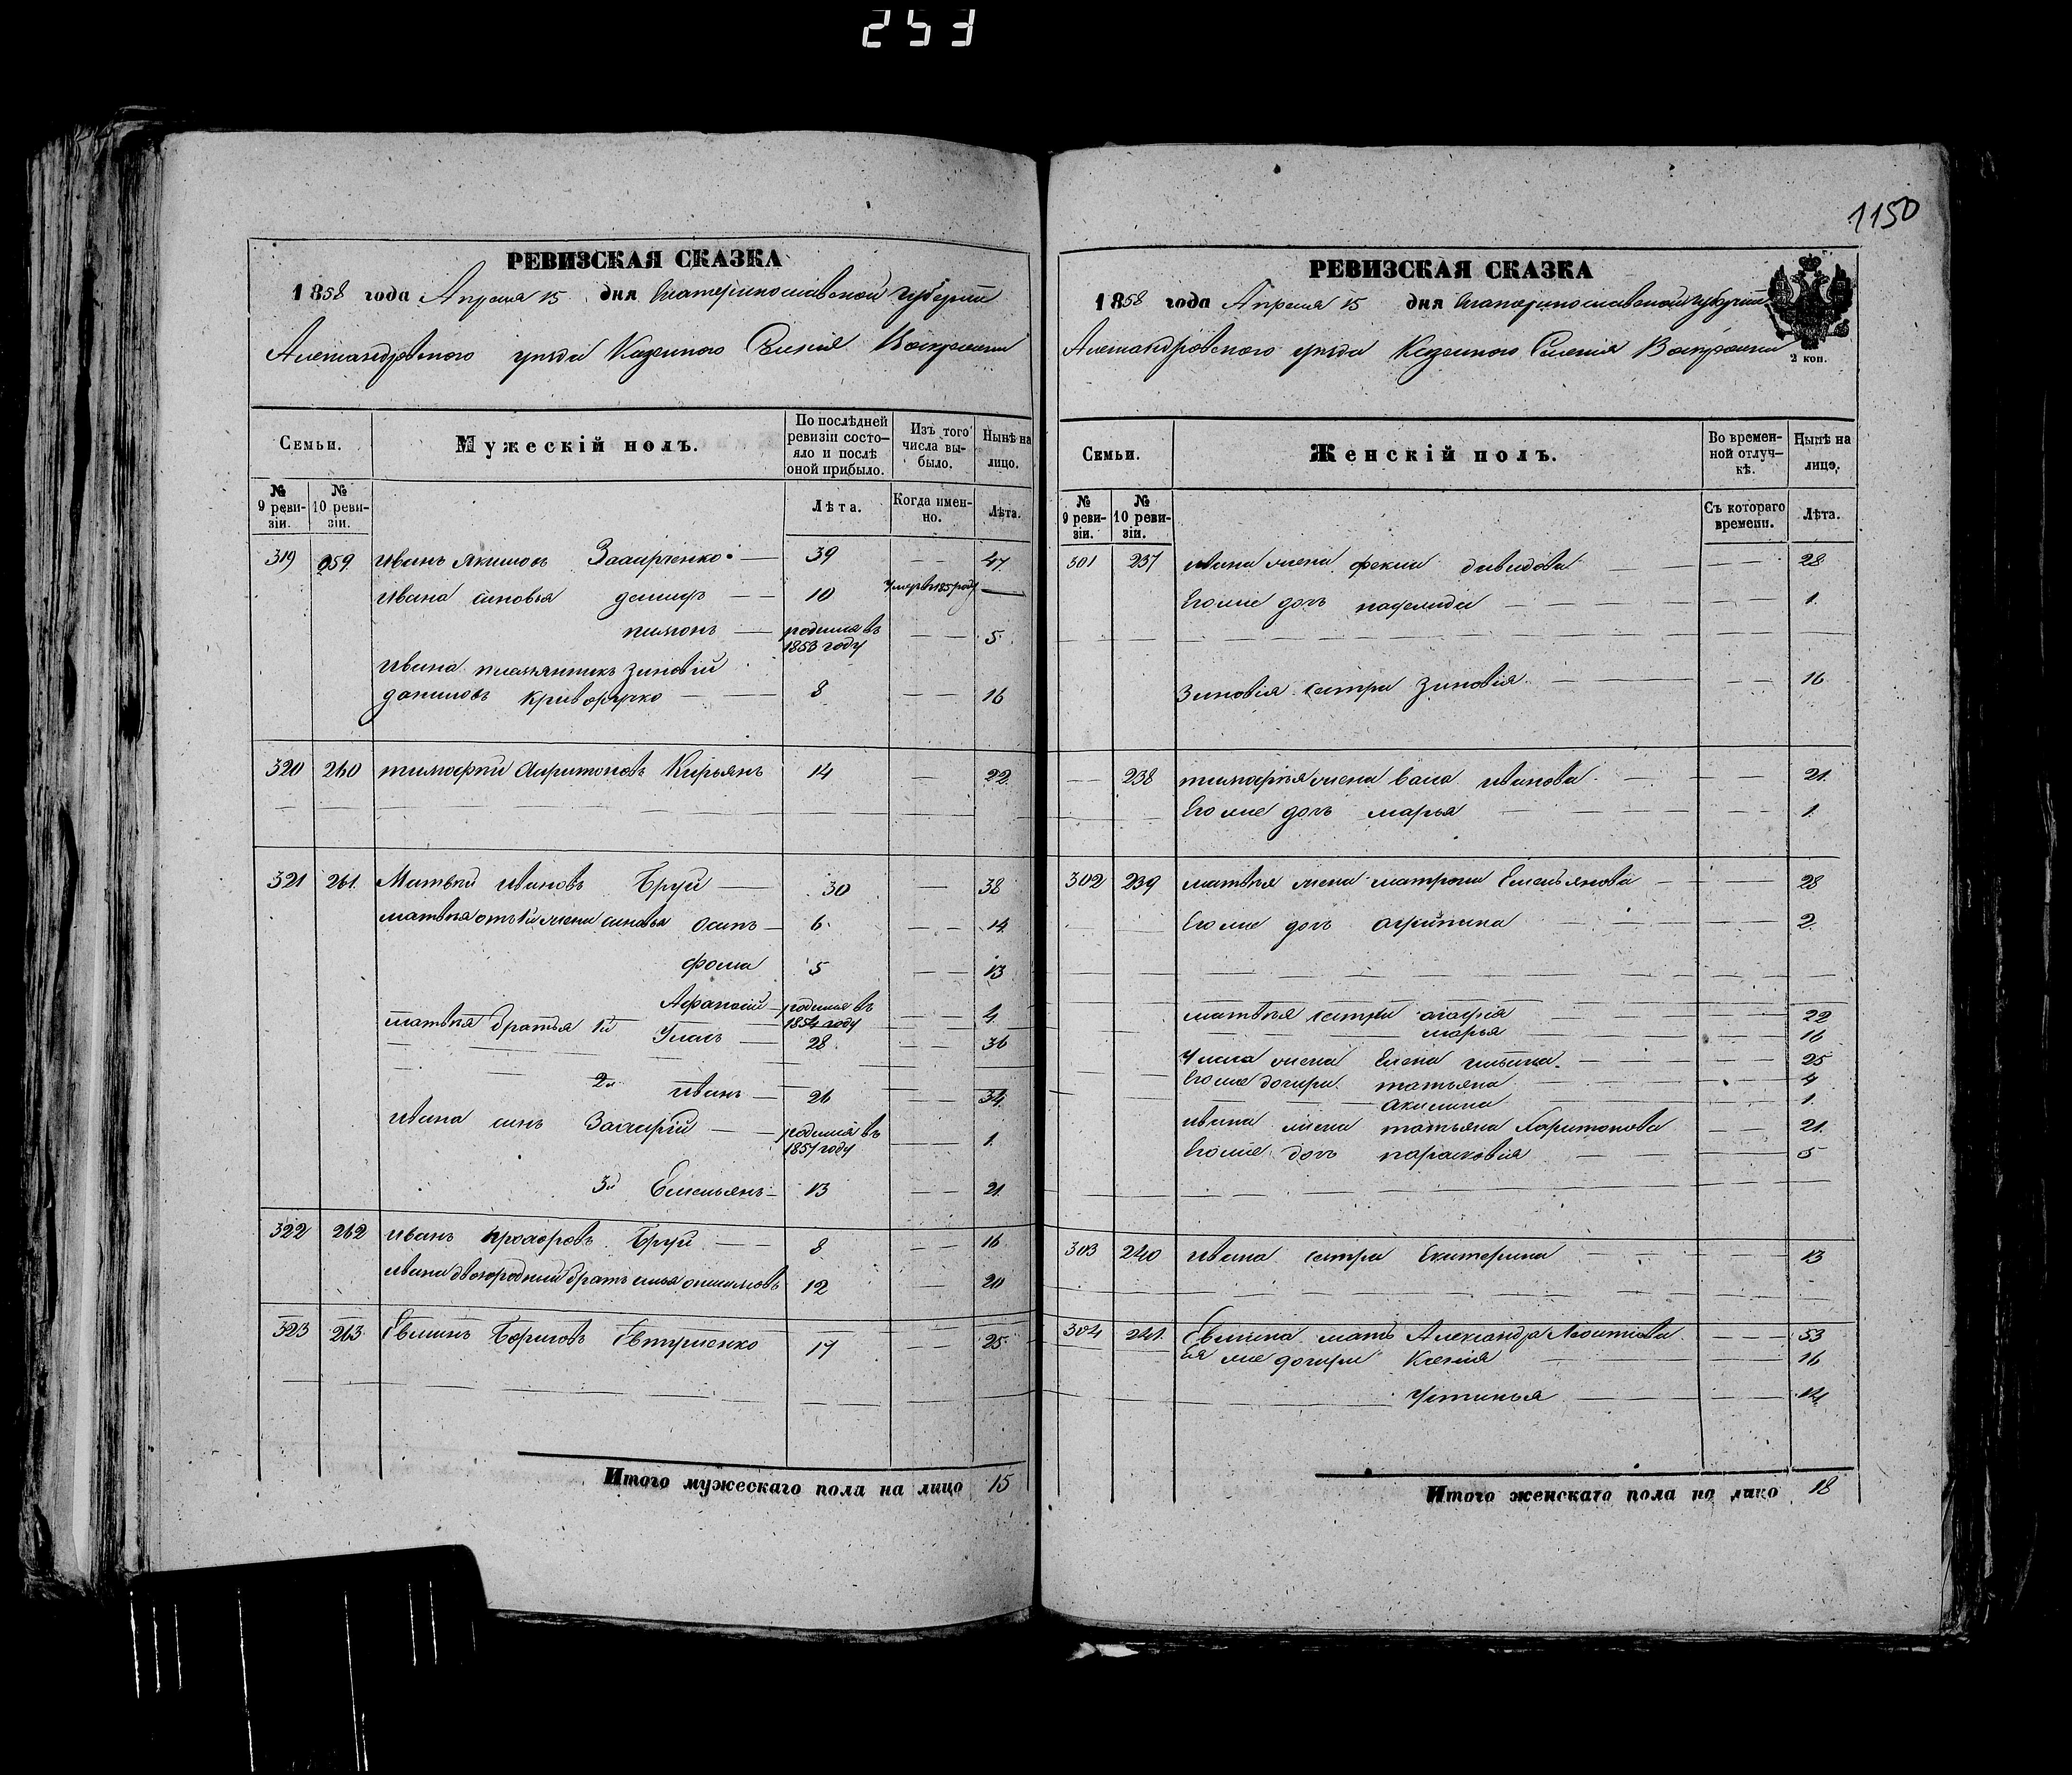 253
1150
РЕВИЗСКАЯ СКАЗКА
1858 года Апреля 15 дня Екатеринославской губернии
Александровского уезда Казенного Селения Воскресенки
Семьи.
Мужескій полъ.
По послѣдней ревизіи состояло и послѣ оной прибыло.
Изъ того числа выбыло.
Нынѣ на лицо.
№ 9 ревизіи.
№ 10 ревизіи.
Лѣта.
Когда именно.
Лѣта.
319 259 Иванъ Якимовъ Захарченко 39 — — 47
Ивана сыновья — — 10 Умеръ в 185 году —
пимонъ — родился въ 1853 году — — 5
Ивана племянникъ Зиновій
даниловъ — — 8 — — 16
320 260 тимофей Харитоновъ Кирьянъ 14 — 22
321 261 Матвей Ивановъ Бруй — 30 — 38
матвея отъ 1й жены сыновья осипъ — 6 — — 14
фома 5 — — 13
Афанасій — родился въ 1854 году — — 4
матвея братья 1й — 28 — — 36
2й иванъ — 26 — — 34
ивана сынъ Захарій — родился въ 1857 году — — 1
3й Емельянъ — 13 — — 21
322 262 иванъ прохоровъ Бруй — 8 — — 16
ивана двоюродный братъ илья 12 — 20
323 263 Борисовъ Евтушенко 17 — — 25
Итого мужескаго пола на лицо 15
РЕВИЗСКАЯ СКАЗКА
1858 года Апреля 15 дня Екатеринославской губернии
Александровского уезда Казенного Селения Воскресенки
2 коп.
Семьи.
Женскій полъ.
Во временной отлучкѣ.
Нынѣ на лицо.
№ 9 ревизіи.
№ 10 ревизіи.
Съ котораго времени.
Лѣта.
301 237 ивана жена фекла давидова — — — 28
Его же дочь — — — 1
Зиновія сестра Зиновія — — — 16
— 238 тимофея жена васа иванова — — — 21
Его же дочь марья — — — 1
302 239 матвея жена матрона Емельянова — — — 28
Его же дочь агрипина — — — 2
матвея сестры агафія — — 22
марья — — 16
жена Елена ильина — — — 25
Его же дочери татьяна — — 4
акилина — — 1
ивана жена татьяна Харитонова — — 21
Его же дочь парасковія — — 5
303 240 ивана сестра Екатерина — — — 13
304 241 мать Александра — — — 53
Ея же дочери Ксенія — — 16
Устинья — — 14
Итого женскаго пола на лицо 18